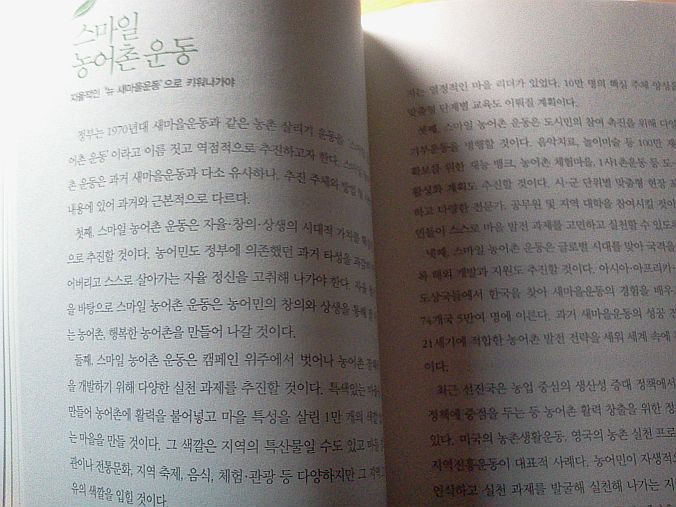 스마일
농어촌 운동
자율적인 '뉴 새마을운동'으로 키워나가야
정부는 1970년대 새마을운동과 같은 농촌 살리기 운동을
어촌 운동'이라고 이름 짓고 역점적으로 추진하고자 한다.
촌 운동은 과거 새마을운동과 다소 유사하나, 추진 주체와
내용에 있어 과거와 근본적으로 다르다.
첫째, 스마일 농어촌 운동은 자율·창의·상생의 시대적 가치를
으로 추진할 것이다. 농어민도 정부에 의존했던 과거 타성을
어버리고 스스로 살아가는 자율 정신을 고취해 나가야 한다. 자율
을 바탕으로 스마일 농어촌 운동은 농어민의 창의와 상생을 통해
는 농어촌, 행복한 농어촌을 만들어 나갈 것이다.
둘째, 스마일 농어촌 운동은 캠페인 위주에서 벗어나 농어촌
을 개발하기 위해 다양한 실천 과제를 추진할 것이다. 특색있는
만들어 농어촌에 활력을 불어넣고 마을 특성을 살린 1만 개의 색깔
는 마을을 만들 것이다. 그 색깔은 지역의 특산물일 수도 있고
관이나 전통문화, 지역 축제, 음식, 체험·관광 등 다양하지만 그 지역
유의 색깔을 입힐 것이다
자는 열정적인 마을 리더가 있었다. 10만 명의 핵심 주체 양성을
맞춤형 단계별 교육도 이뤄질 계획이다.
셋째, 스마일 농어촌 운동은 도시민의 참여 촉진을 위해 다양
기부운동을 병행할 것이다. 음악치료, 놀이미술 등 100만 재
확보를 위한 재능 뱅크, 농어촌 체험마을, 1사1촌운동 등 도
활성화 계획도 추진할 것이다. 시·군 단위별 맞춤형 현장
하고 다양한 전문가, 공무원 및 지역 대학을 참여시킬 것이
민들이 스스로 마을 발전 과제를 고민하고 실천할 수 있도
넷째, 스마일 농어촌 운동은 글로벌 시대를 맞아 국격을
록 해외 개발과 지원도 추진할 것이다. 아시아·아프리카
도상국들에서 한국을 찾아 새마을운동의 경험을 배우
74개국 5만여 명에 이른다. 과거 새마을운동의 성공
21세기에 적합한 농어촌 발전 전략을 세워 세계 속에
이다.
최근 선진국은 농업 중심의 생산성 증대 정책에서
정책에 중점을 두는 등 농어촌 활력 창출을 위한 정
있다. 미국의 농촌생활운동, 영국의 농촌 실천 프로
지역진흥운동이 대표적 사례다. 농어민이 자생적으
인식하고 실천 과제를 발굴해 실천해 나가는 지